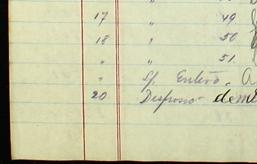 17 " 49
18 " 50
" " 51.
" S/ Entero. a
20 Desposo deme